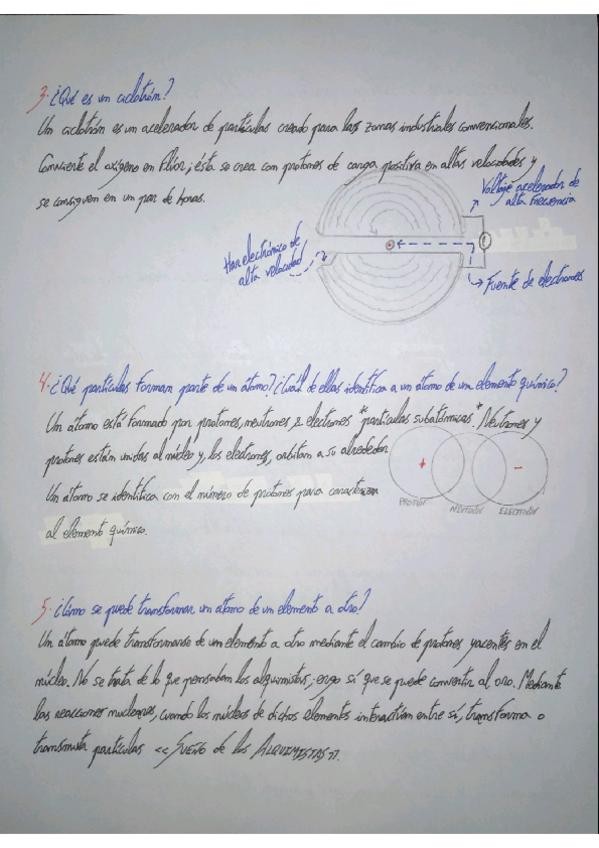 3. ¿Qué es un ciclotrón?
Un ciclotrón es un acelerador de partículas creado para las zonas industriales convencionales.
Convierte el oxígeno en Flúor; ésta se crea con protones de carga positiva en altas velocidades y
se consiguen en un par de horas.
Voltaje acelerador de
alta Frecuencia
Haz electrónico de
alta velocidad
Fuente de electrones
4. ¿Qué partículas forman parte de un átomo? ¿Cuál de ellas identifica a un átomo de un elemento químico?
Un átomo está formado por protones, neutrones & electrones *partículas subatómicas*. Neutrones y
protones están unidas al núcleo y, los electrones, orbitan a su alrededor.
Un átomo se identifica con el número de protones para caracterizar
al elemento químico.
+
-
PROTÓN
NEUTRÓN
ELECTRÓN
5. ¿Cómo se puede transformar un átomo de un elemento a otro?
Un átomo puede transformarse de un elemento a otro mediante el cambio de protones yacentes en el
núcleo. No se trata de lo que pensaban los alquimistas, ergo sí que se puede convertir al oro. Mediante
las reacciones nucleares, cuando los núcleos de dichos elementos interactúan entre sí, transforma o
transmuta partículas << SUEÑO de los ALQUIMISTAS >>.